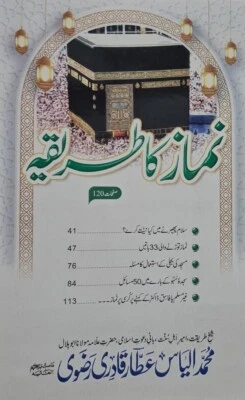 نماز کا طریقہ
صفحات 120
سلام پھیرنے میں کیا نیت کرے؟ 41
نماز توڑنے والی 33 باتیں 47
مسجد کی بجلی کے استعمال کا مسئلہ 76
سجدۂ سہو کے بارے میں 50 مسائل 84
غیر مسلم یا فاسق ڈاکٹر کے کہنے پر کرسی پر نماز 113
شیخ طریقت، امیر اہل سنت، بانی دعوت اسلامی، حضرت علامہ مولانا ابو بلال
محمد الیاس عطار قادری رضوی